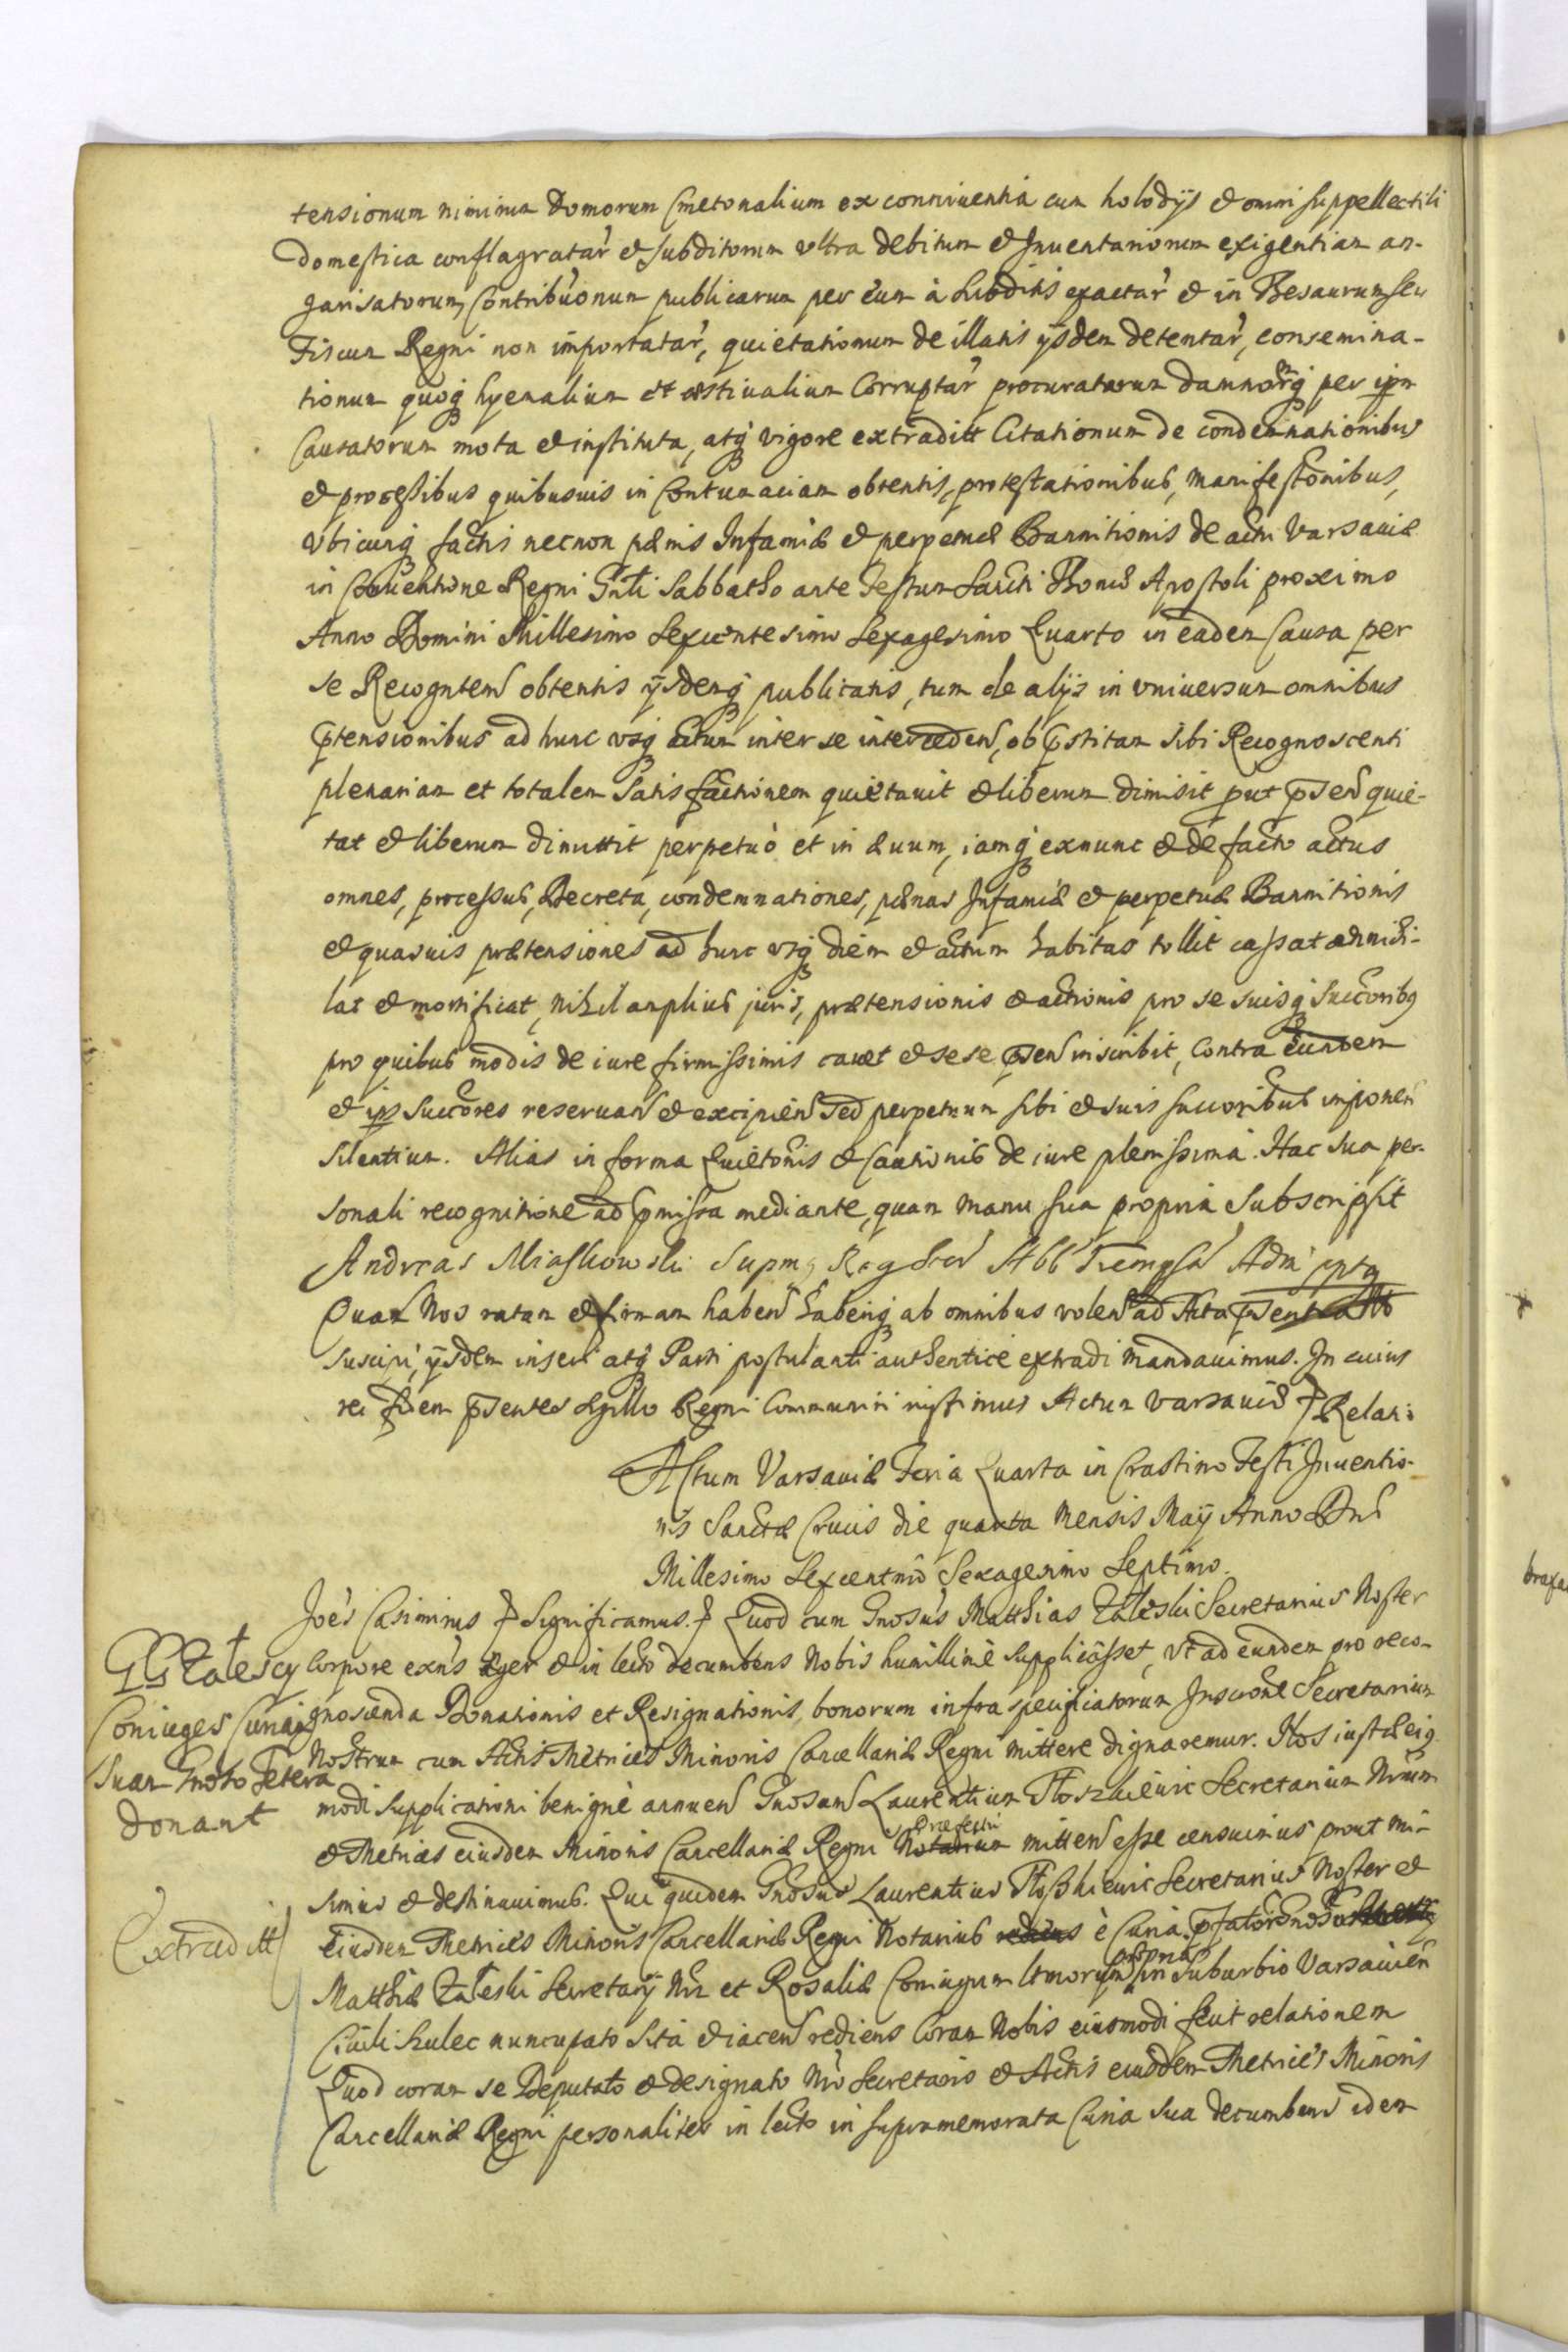 tensionum nimirum Domorum Cmetonalium ex conniventia cum holodijs et omni suppellectili
domestica conflagratar' et subditorum ultra debitum et Inventariorum exigentiam an-
garisatorum, Contribuonum publicarum per eum à subditis exactar' et in Thesaurum seu
Fiscum Regni non importatar', quietationum de illatis ijsdem detentar', consemina-
tionum quoq hyemalium et æstivalium Corruptar' procuratorum damnorq per ipm
Causatorum mota et instituta, atq vigore extraditt Citationum de condemnationibus
et processibus quibusvis in Contumaciam obtentis, protestationibus, manifestonibus,
Vbicunq factis necnon pænis Infamiæ et perpetuæ Bannitionis de actu Varsaviæ
in Conventione Regni Gnli Sabbatho ante Festum Sancti Thomæ Apostoli proximo
Anno Domini Millesimo Sexcentesimo Sexagesimo Quarto in eadem Causa per
se Recogntem obtentis ijsdemq publicatis, tum de alijs in universum omnibus
ptensionibus ad hunc usq actum inter se interceden, ob pstitam sibi Recognoscenti
plenariam et totalem Satisfactionem quietavit et liberum dimisit put psen quie-
tat et liberum dimittit perpetuò et in ævum, iamq exnunc et de facto actus
omnes, processus, Decreta, condemnationes, pænas Infamiæ et perpetuæ Bannitionis
et quasvis prætensiones ad hunc usq diem et actum habitas tollit cassat annihi-
lat et mortificat, nihil amplius juris, prætensionis et actionis pro se suisq succoribq
pro quibus modis de iure firmissimis cavet et sese psen inscribit, Contra eundem
et ips succores reservan et excipien sed perpetuum sibi et suis succoribus imponen
silentium. Alias in forma Quietonis et Cautionis de iure plenissima. Hac sua per-
sonali recognitione ad pmissa mediante, quam manu sua propria subscripsit
Andreas Miaskowski Supm
Quam Nos ratam et firmam haben haberiq ab omnibus volen ad Acta psentia
suscipi, ijsdem inseri atq Parti postulanti authentice extradi mandavimus. In cuius
rei fidem psentes sigillo Regni Communiri iussimus Actum Varsaviæ Relati
Actum Varsaviæ Feria Quarta in Crastino Festi Inventio-
nis Sanctæ Crucis die quarta Mensis Maij Anno Dni
Millesimo Sexcentmo Sexagesimo Septimo.
Joes Casimirus Significamus. Quod cum Gnosus Matthias Zaleski Secretarius Noster
GG Zalescy
Coniuges Curiam
Suam Gnoso Fetera
donant
corpore exns æger et in lecto decumbens Nobis humillime supplicasset, vt ad eundem pro reco-
gnoscenda Donationis et Resignationis, bonorum infra specificatorum Inscrone Secretarium
Nostrum cum Actis Metrices Minoris Cancellariæ Regni Mittere dignaremur. Nos iustæ eiq
modi supplicationi benignè annuen Gnosum Laurentium Floszkiewic Secretarium Nrum
Præfecti
et Metrices eiusdem Minoris Cancellariæ Regni Notarium mitten esse censuimus prout mi-
simus et destinavimus. Qui quidem Gnosus Laurentius Floszkiewic Secretarius Noster et
Extraditt
eiusdem Metrices Minoris Cancellariæ Regni Notarius rediens è Curia pfator Gnosor
propria
Matthiæ Zaleski Secretarij Nri et Rosaliæ Coniugum Itmorum in suburbio Varsavien
Civili Szulec nuncupato sita et iacen rediens Coram Nobis eiusmodi fecit relationem
Quod coram se Deputato et designato Nro Secretario et Actis eiusdem Metrices Minoris
Cancellariæ Regni personaliter in lecto in supramemorata Curia sua decumbens idem